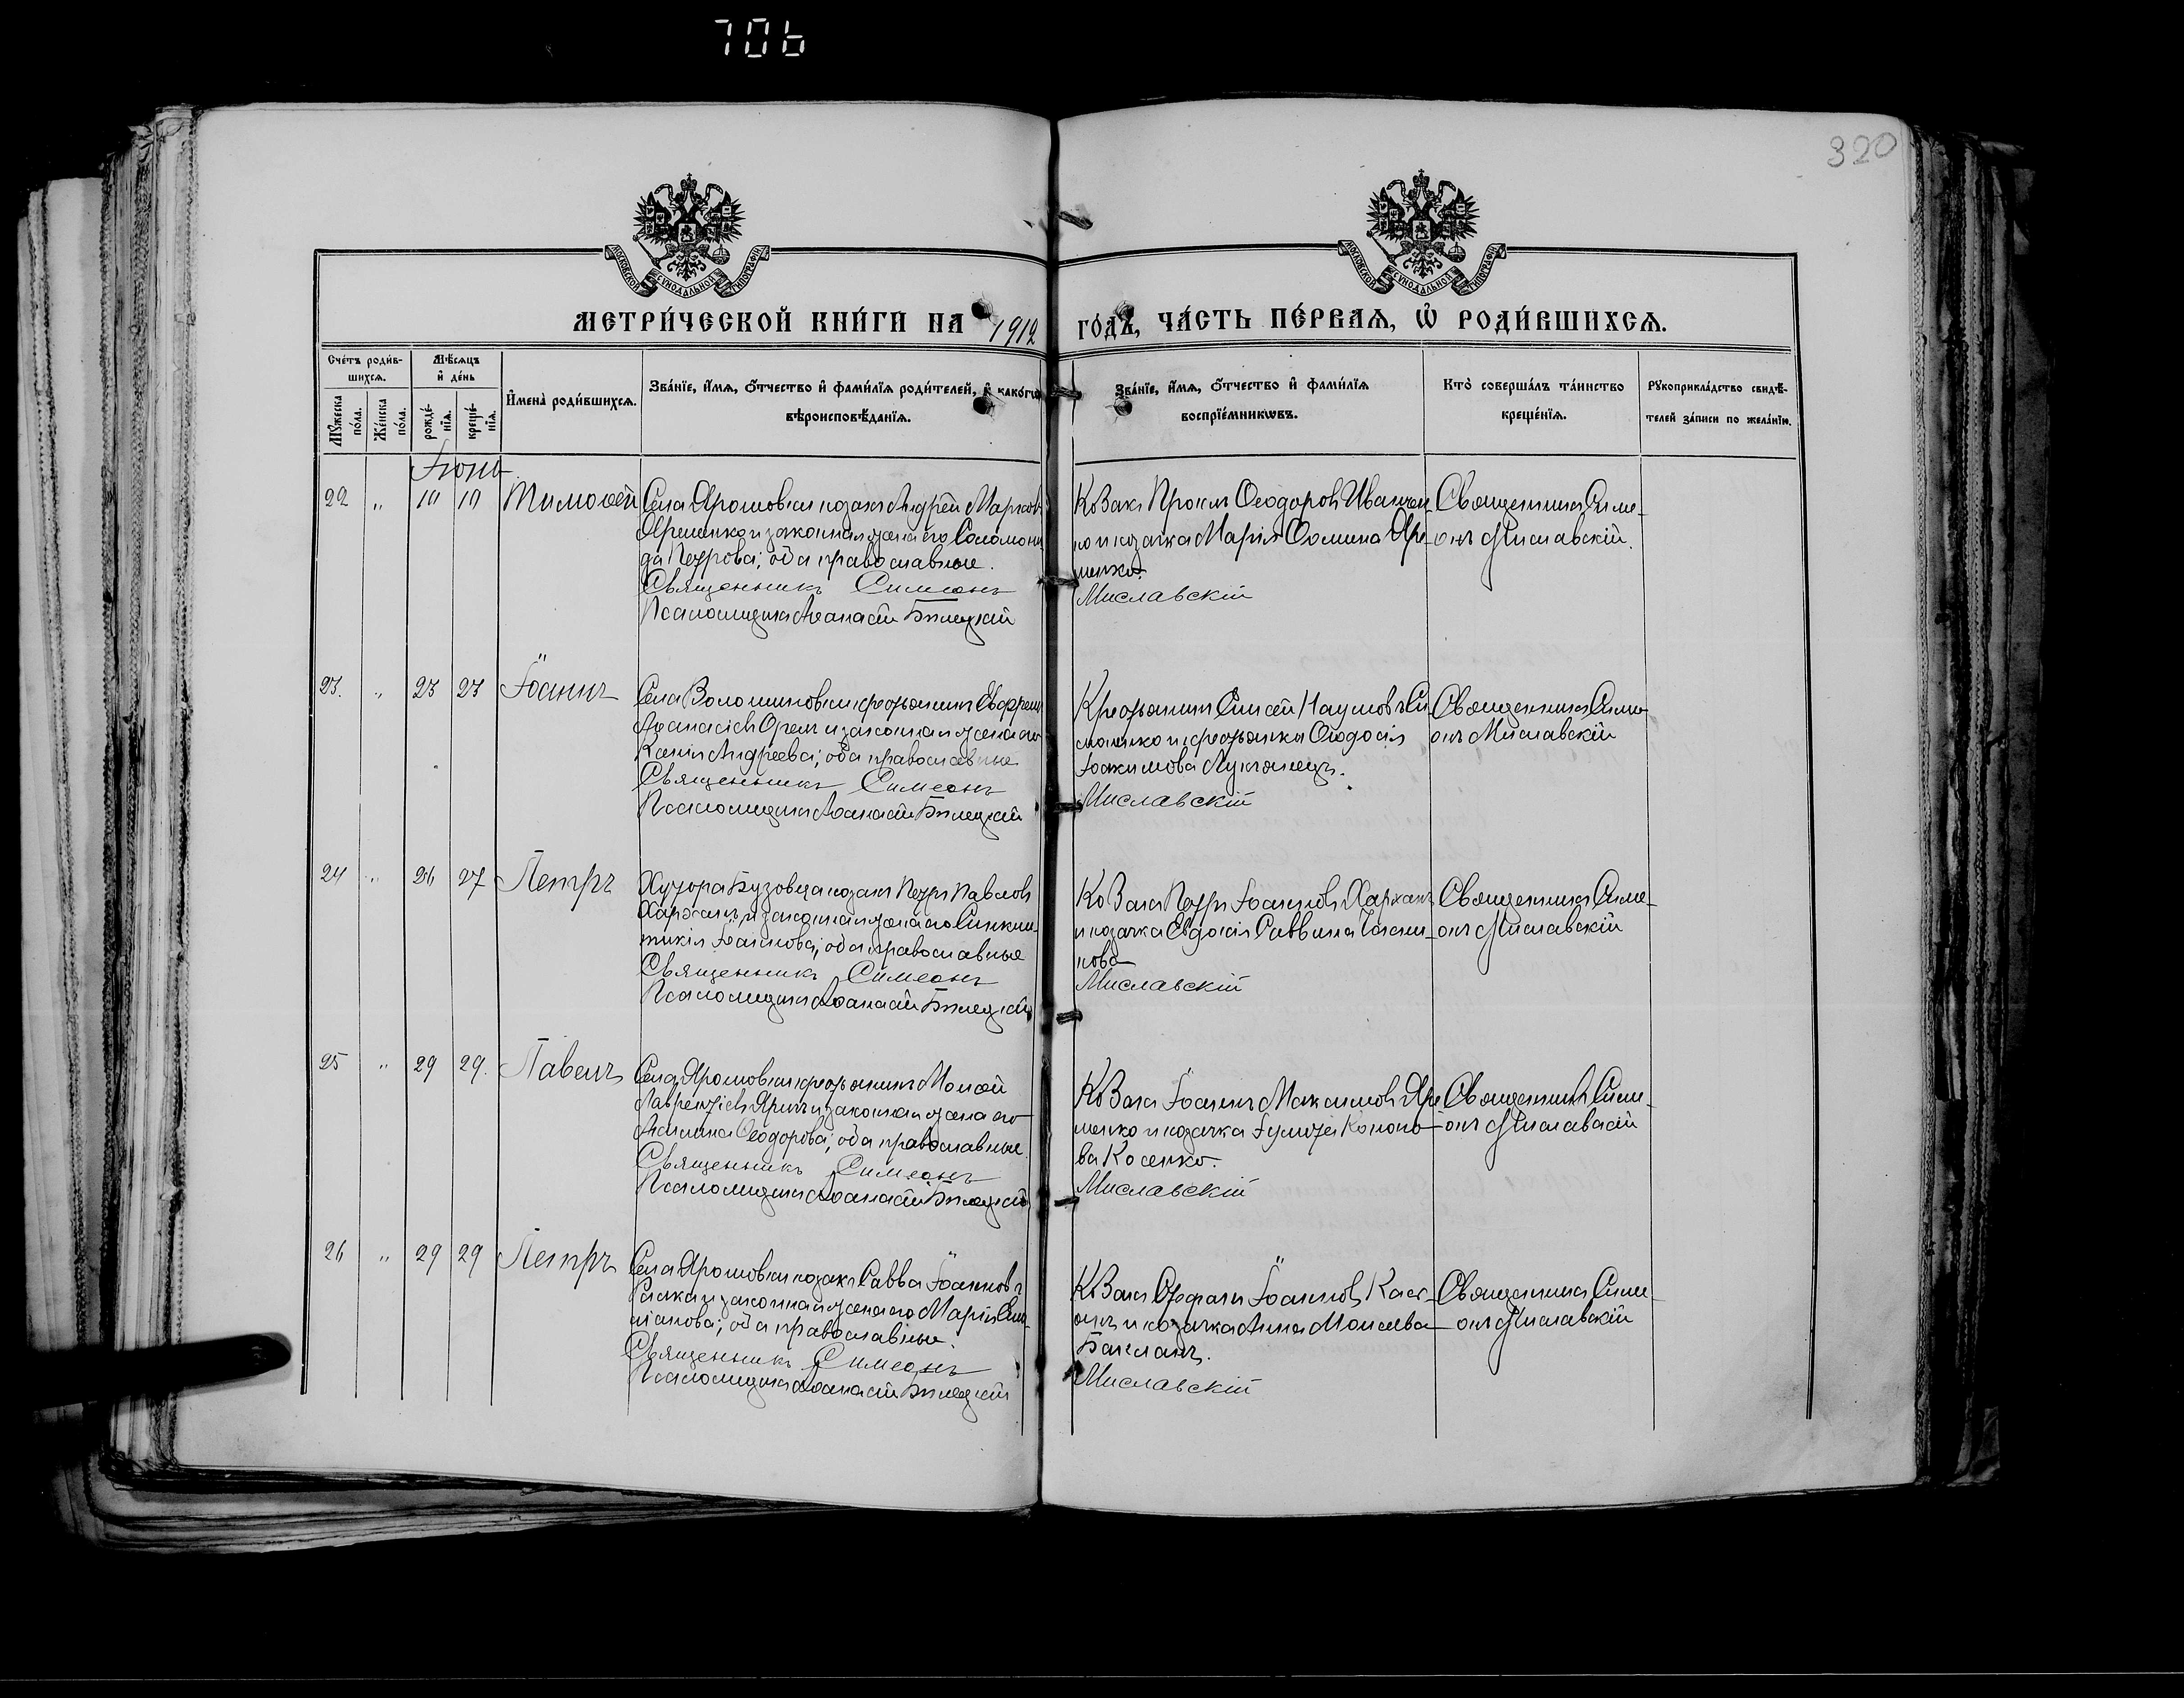 706
320
МОСКОВСКОЙ СѴНОДАЛЬНОЙ ТИПОГРАФІИ
МОСКОВСКОЙ СѴНОДАЛЬНОЙ ТИПОГРАФІИ
МЕТРИ́ЧЕСКОЙ КНИ́ГИ НА 1912 ГО́ДЪ, ЧА́СТЬ ПЕ́РВАЯ, Ѡ РОДИ́ВШИХСЯ.
Сче́тъ роди́в-
шихся.
Мѣ́сяцъ
и҆ де́нь
Мꙋ́жеска
по́ла.
Же́нска
по́ла.
рожде́-
нїя.
креще́-
нїя.
И҆мена̀ роди́вшихся.
Зва́нїе, и҆́мя, ѻ҆́тчество и҆ фами́лїя роди́телей, и҆ како́гѡ
вѣроисповѣ́данїя.
Зва́нїе, и҆́мя, ѻ҆́тчество и҆ фами́лїя
воспрїе́мникѡвъ.
Кто̀ соверша́лъ та́инство
креще́нїя.
Рꙋкоприкла́дство свидѣ́-
телей за́писи по жела́нїю.
Іюнь
22 „ 10 10 Тимоѳей
Села Ярошовки козакъ Андрей Марковъ
Яременко и законная жена его Соломони-
да Петрова; оба православные.
Священникъ Симеонъ
Псаломщикъ Аѳанасій Билецкій
Козакъ Проклъ Ѳеодоровъ Иванчен-
ко и козачка Марія Ѳомина Яре-
менко.
Миславскій
Священникъ Симе-
онъ Миславскій.
23. „ 23 23 Іоаннъ
Села Волошиновки крестьянинъ Евфрем
Аѳанасіевъ Орелъ и законная жена его
Ксенія Андреева; оба православные
Священникъ Симеонъ
Псаломщикъ Аѳанасій Билецкій
Крестьянинъ Наумовъ
и крестьянка Ѳеодосія
Іоакимова Лукьянецъ.
Миславскій
Священникъ Симе-
онъ Миславскій
24 „ 26 27 Петръ
Хутора Бузовца козакъ Петръ Павловъ
Харханъ и законная жена его Синкли-
тикія Іоаннова; оба православные
Священникъ Симеонъ
Псаломщикъ Аѳанасій Билецкій
Козакъ Петръ Іоанновъ Харханъ
и козачка Евдокія Саввина
нова
Миславскій
Священникъ Симе-
онъ Миславскій
25 „ 29 29. Павелъ
Села Ярошовки крестьянинъ Моисей
Лаврентіевъ и законная жена его
Ѳеодорова; оба православные.
Священникъ Симеонъ
Псаломщикъ Аѳанасій Билецкій
Козакъ Іоаннъ Максимовъ Яре-
менко и козачка Іулитта Кононо-
ва Косенко.
Миславскій
Священникъ Симе-
онъ Миславскій
26 „ 29 29 Петръ
Села Ярошовки козакъ Савва Іоанновъ
и законная жена его Марія
оба православные.
Священникъ Симеонъ
Псаломщикъ Аѳанасій Билецкій
Козакъ Стефанъ Іоанновъ
и козачка Анна Моисеева
Бакланъ.
Миславскій
Священникъ Симе-
онъ Миславскій